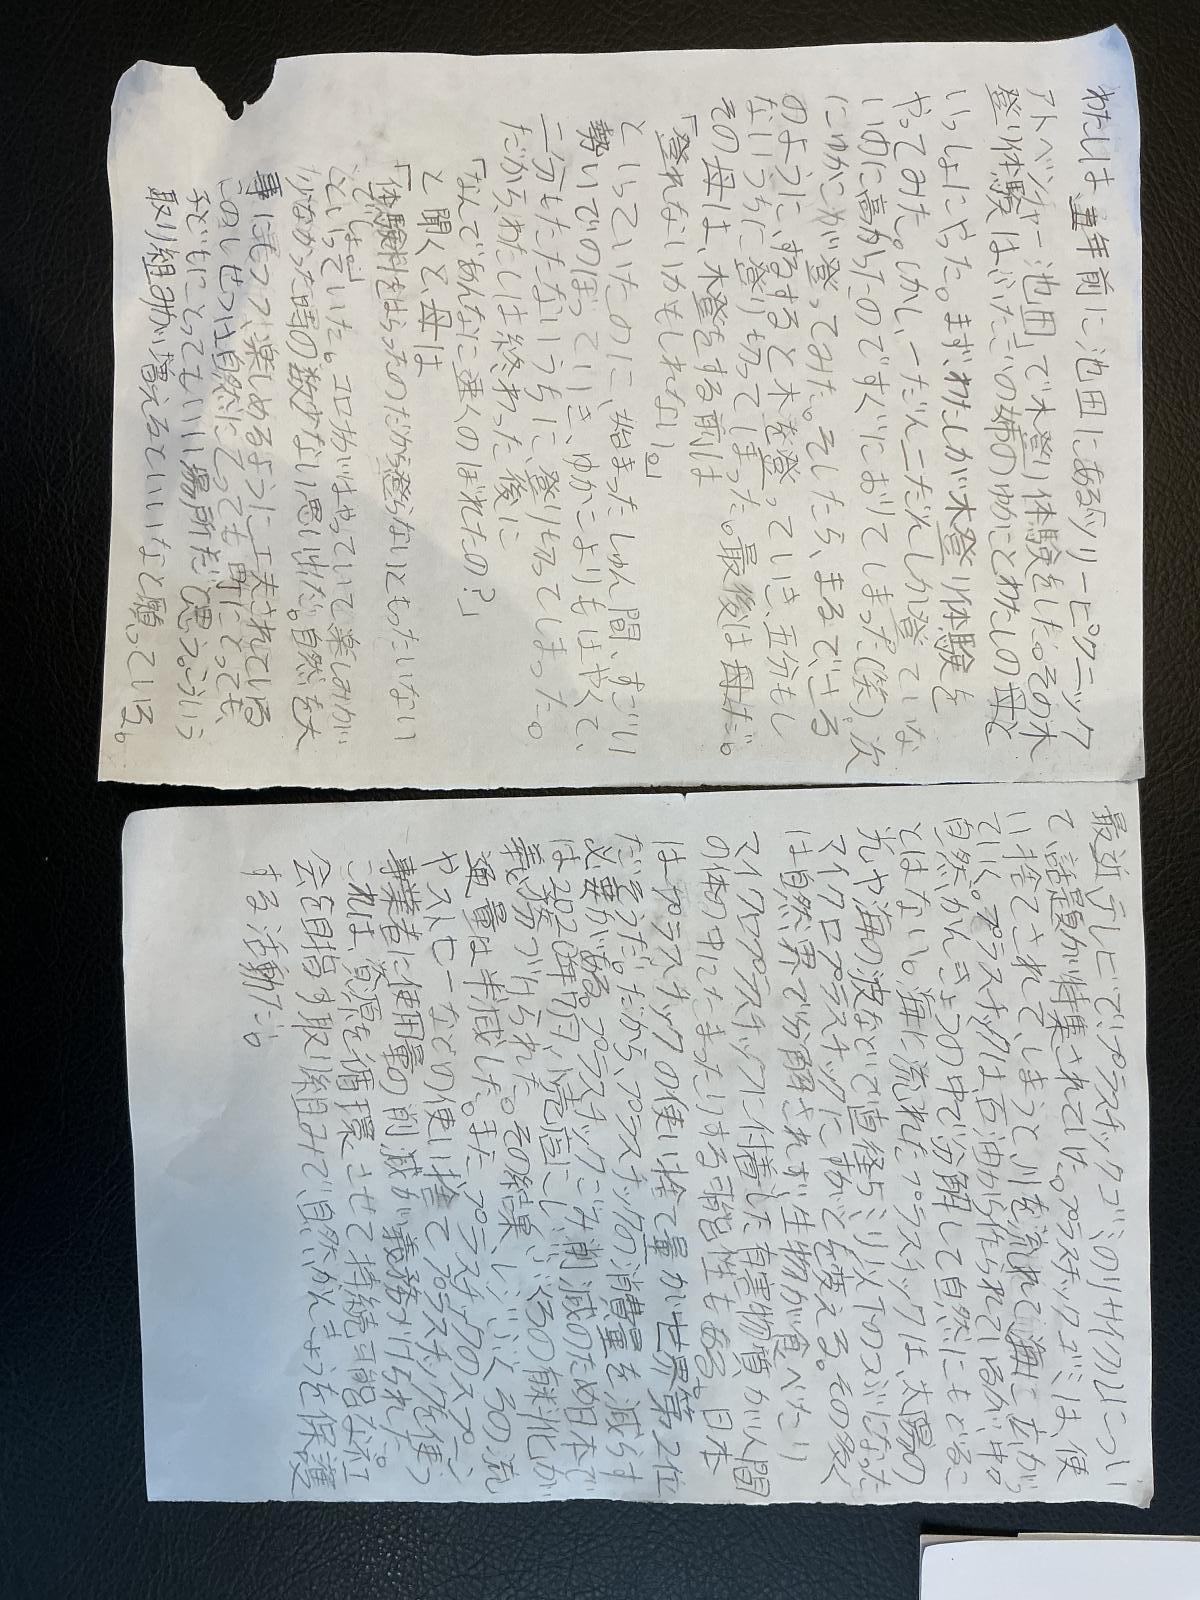 わたしは二年前に池田にある「ツリーピクニック
アドベンチャー池田」で木登り体験をした。その木
登り体験はふたごの姉のゆかことわたしの母と
いっしょにやった。まずわたしが木登り体験を
やってみた。しかし、一だんしか登っていな
いのに高かったのですぐにおりてしまった(笑)。次
にゆかこが登ってみた。そしたら、まるでさる
のように、するすると木を登っていき、五分もし
ないうちに登り切ってしまった。最後は母だ。
その母は、木登をする前は
「登れないかもしれない。」
といっていたのに、始まったしゅん間、すごい
勢いでのぼっていき、ゆかこよりもはやくて、
二分もたたないうちに、登り切ってしまった。
だからわたしは終わった後に
「なんであんなに速くのぼれたの?」
と聞くと、母は
「体験料をはらったのだから登らないともったいない
でしょ。」
といっていた。コロナがはやっていて楽しみが
少なかった時の数少ない思い出だ。自然を大
事にもつつ、楽しめるように工夫されている
このしせつは自然にとっても町にとっても、
子どもにとってもいい場所だと思う。こういう
取り組みが増えるといいなと願っている。
最近テレビでプラスチックゴミのリサイクルについ
て、話題が特集されていた。プラスチックゴミは、使
い捨てされて、しまうと川を流れて海に広がっ
ていく。プラスチックは、石油から作られているが、中々
自然かんきょうの中で分解して自然にもどるこ
とはない。海に流れたプラスチックは、太陽の
光や海の波などで直経5ミリ以下のつぶになった
マイクロプラスチックにすがたを変える。その多く
は自然界で分解されず、生物が食べたり
マイクロプラスチックに付着した有害物質が人間
の体の中にたまったりする可能性もある。日本
は、プラスチックの使い捨て量が世界第2位
だそうだ。だから、プラスチックの消費量を減らす
必要がある。プラスチックごみ削減のため日本で
は2020年7月、小売店にレジぶくろの有料化が
義務づけられた。その結果、レジぶくろの流
通量は半減した。また、プラスチックのスプーン
やストローなどの使い捨てプラスチックを使う
事業者に使用量の削減が義務づけられた。
これは、資源を循環させて持続可能な社
会を目指す取り組みで自然かんきょうを保護
する活動だ。